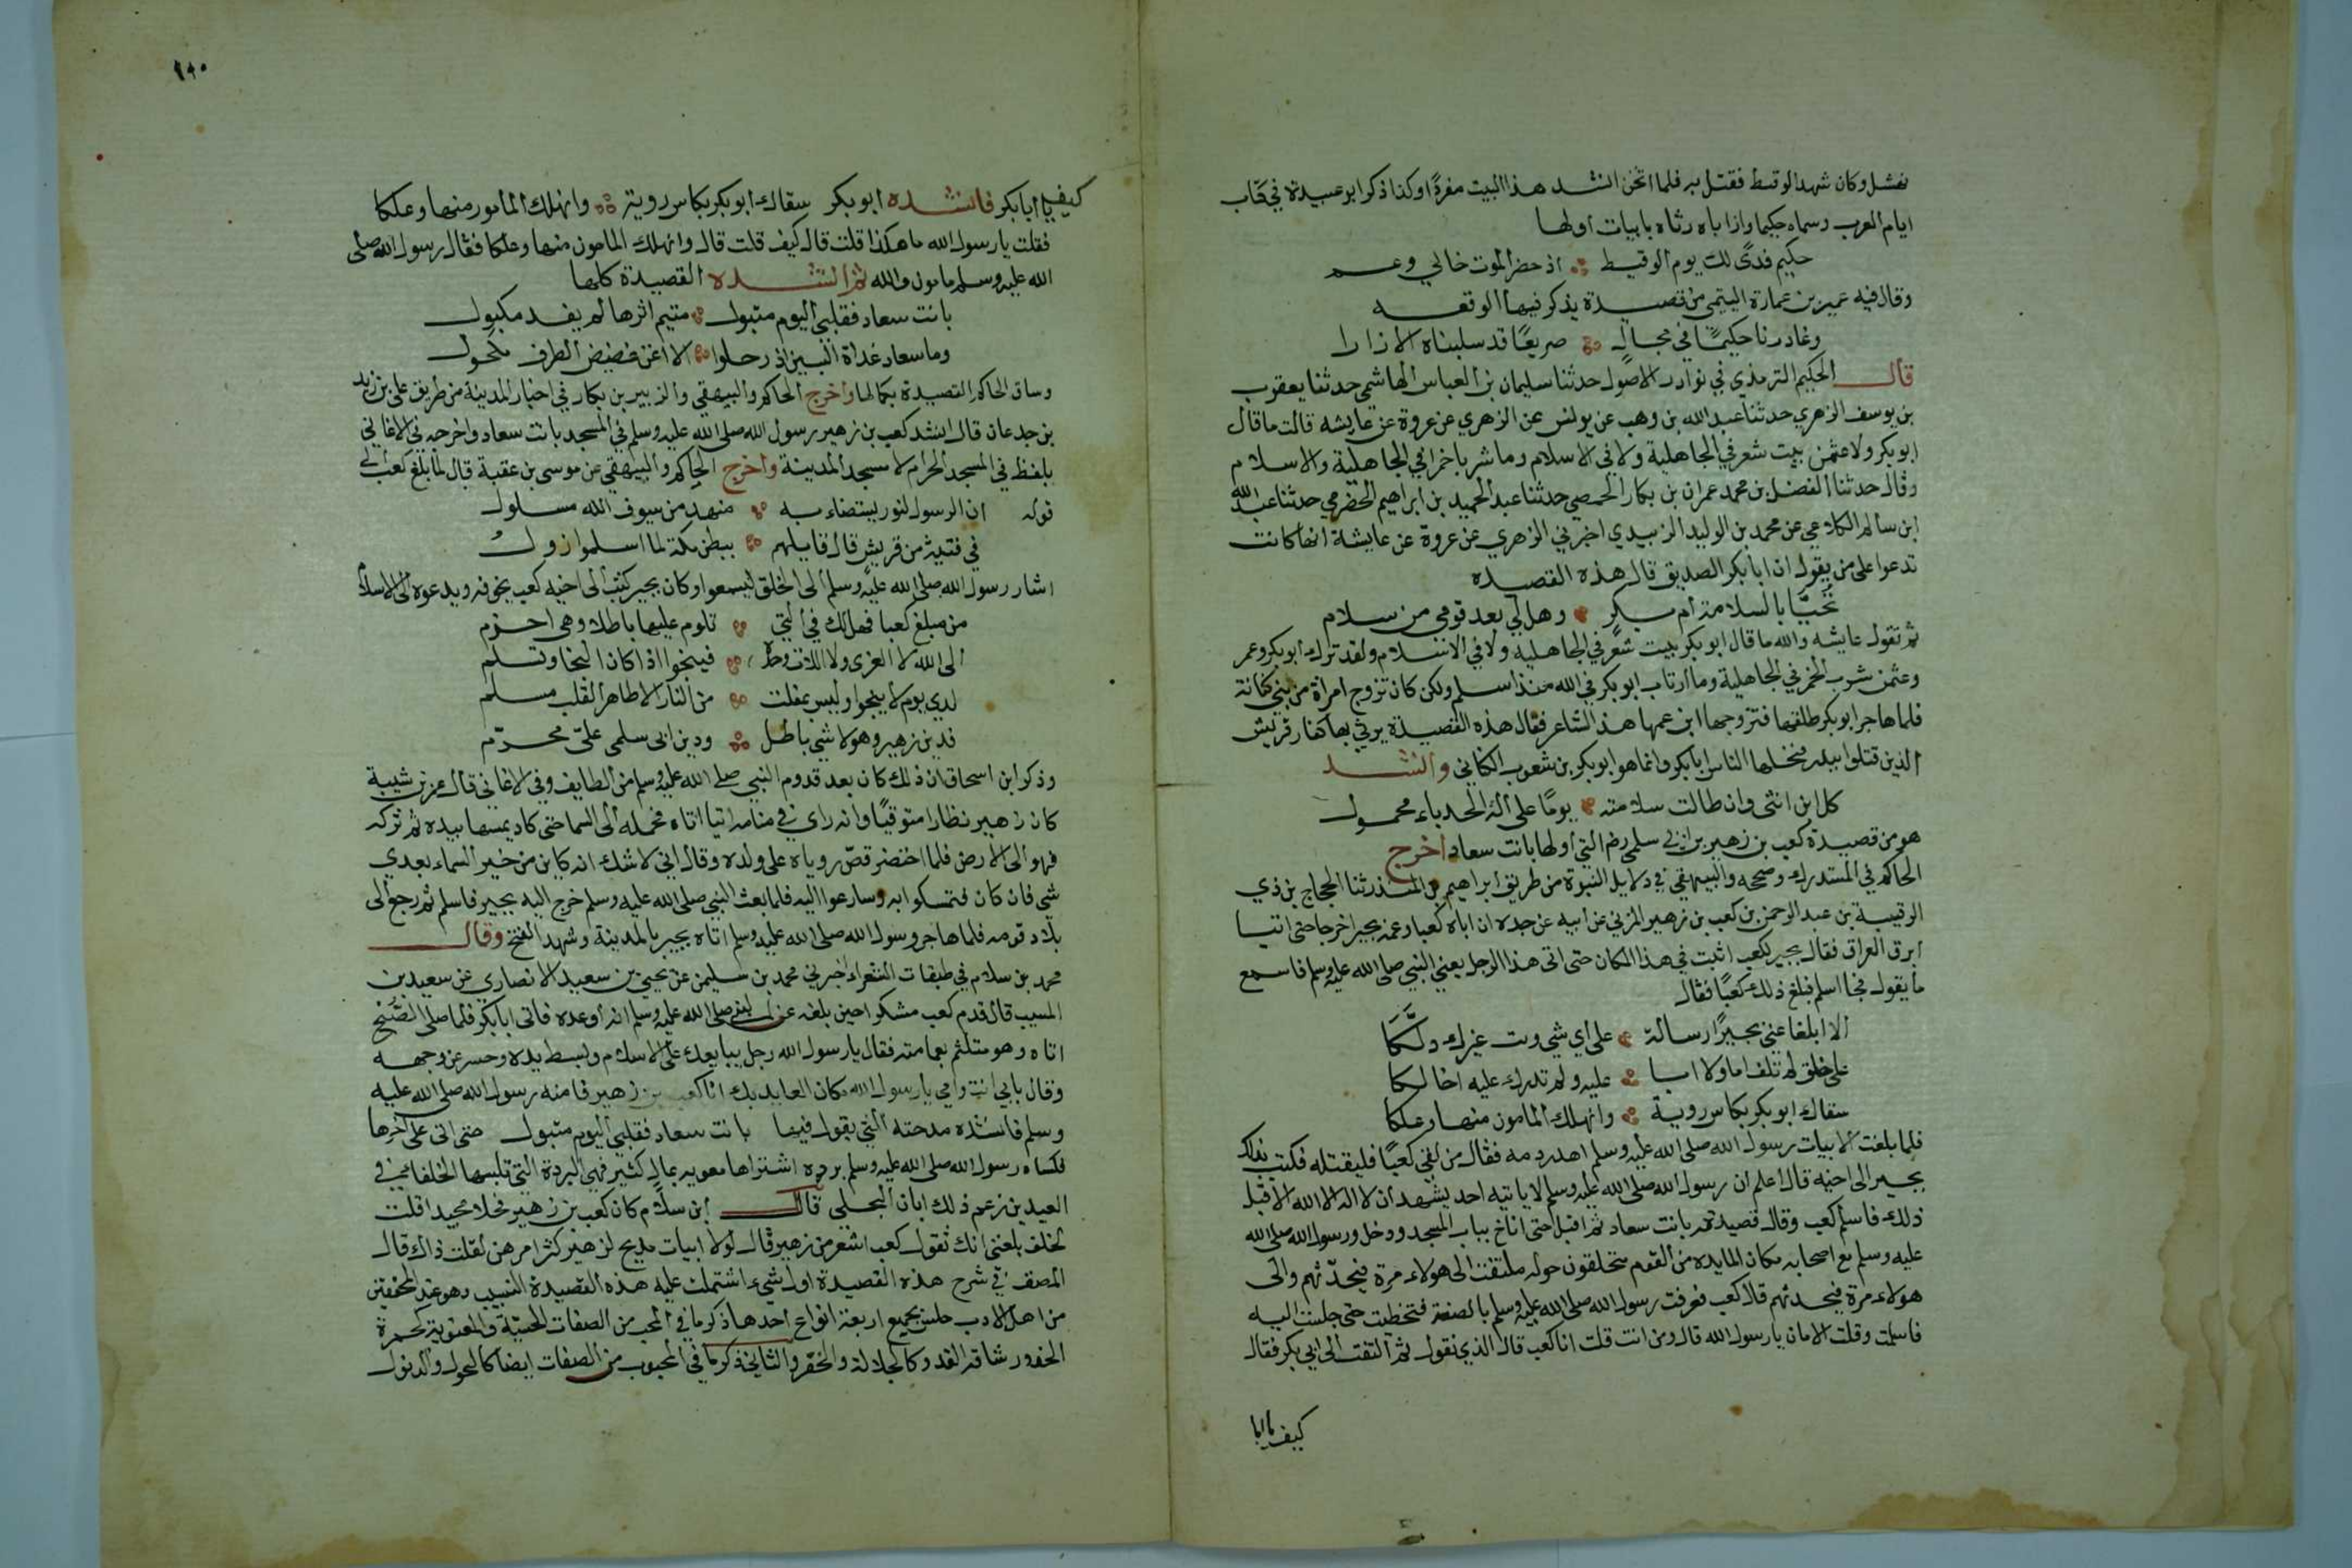 نهشل وكان شهد الوقيط فقتل به فلما اثخن انشد هذا البيت مفردًا وكذا ذكر ابو عبيدة في كتاب
ايام العرب وسماه حكيما وان اباه رثاه بابيات اولها
حكيم فدًى لك يوم الوقيط اذ حضر الموت خالي وعم
وقال فيه عمير بن عمارة التيمي من قصيدة يذكر فيها الوقعه
وغادرنا حكيمًا في مجالٍ صريعًا قد سلبناه الازارا
قال الحكيم الترمذي في نوادر الاصول حدثنا سليمان بن العباس الهاشمي حدثنا يعقوب
بن يوسف الزهري حدثنا عبد الله بن وهب عن يونس عن الزهري عن عروة عن عايشه قالت ما قال
ابو بكر ولا عثمن بيت شعر في الجاهلية ولا في الاسلام وما شربا خمرا في الجاهلية والاسلام
وقال حدثنا الفضل بن محمد عمران بن بكار الحمصي حدثنا عبد الحميد بن ابراهيم الحضرمي حدثنا عبد الله
ابن سالم الكلاعي عن محمد بن الوليد الزبيدي اخبرني الزهري عن عروة عن عايشة انها كانت
تدعوا على من يقول ان ابا بكر الصديق قال هذه القصيده
تحيّا بالسلامة ام بكر وهل لي بعد قومي من سلام
ثم تقول عايشه والله ما قال ابو بكر بيت شعر في الجاهليه ولا في الاسلام ولقد ترك ابو بكر وعمر
وعثمن شرب الخمر في الجاهلية وما ارتاب ابو بكر في الله منذ اسلم ولكن كان تزوج امرأة من بني كنانة
فلما هاجر ابو بكر طلقها فتزوجها ابن عمها هذا الشاعر فقال هذه القصيدة يرثي بها كفار قريش
الذين قتلوا ببدر فنحلها الناس ابا بكر وانما هو ابو بكر بن شعوب الكناني وانشد
كل ابن انثى وان طالت سلامته يومًا على آلة الحدباء محمول
هو من قصيدة كعب بن زهير بن ابي سلمى رضه التي اولها بانت سعاد اخرج
الحاكم في المستدرك وصححه والبيهقي في دلايل النبوة من طريق ابراهيم بن المنذر ثنا الحجاج بن ذي
الرقيبة بن عبد الرحمن بن كعب بن زهير المزني عن ابيه عن جده ان اباه كعبا وعمه بجيرا خرجا حتى اتيا
ابرق العراق فقال بجير لكعب اثبت في هذا المكان حتى اتى هذا الرجل يعني النبي صلى الله عليه وسلم فاسمع
ما يقول فجا اسلم فبلغ ذلك كعبًا فقال
الا ابلغا عني بجيرًا رسالة على اي شي ويب غيرك دلّكَا
على خلق لم تلف اما ولا ابا عليه ولم تدرك عليه اخا لكا
سقاك ابو بكر بكاس روية وانهلك المامون منها وعلكا
فلما بلغت الابيات رسول الله صلى الله عليه وسلم اهدر دمه فقال من لقي كعبًا فليقتله فكتب بذلك
بجير الى اخيه قال اعلم ان رسول الله صلى الله عليه وسلم لا ياتيه احد يشهد ان لا اله الا الله الا قبل
ذلك فاسلم كعب وقال قصيدته بانت سعاد ثم اقبل حتى اناخ بباب المسجد ودخل ورسول الله صلى الله
عليه وسلم مع اصحابه مكان المايده من القوم متحلقون حوله ملتفت الى هولاء مرة فيحدّثهم والى
هولاء مرة فيحدثهم قال كعب فعرفت رسول الله صلى الله عليه وسلم بالصفة فتخطيت حتى جلست اليه
فاسلمت وقلت الامان يا رسول الله قال ومن انت قلت انا كعب قال الذي تقول ثم التفت الى ابي بكر فقال
كيف يا ابا
٩٨٠
كيف يا ابا بكر فانشده ابو بكر سقاك ابو بكر بكاس روية وانهلك المامور منها وعلكا
فقلت يا رسول الله ما هكذا قلت قال كيف قلت قال وانهلك المامون منها وعلكا فقال رسول الله صلى
الله عليه وسلم مامون والله ثم انشده القصيدة كلها
بانت سعاد فقلبي اليوم متبول متيم اثرها لم يفد مكبول
وما سعاد غداة البين اذ رحلوا الا اغن غضيض الطرف مكحول
وساق الحاكم القصيدة بكمالها واخرج الحاكم والبيهقي والزبير بن بكار في اخبار المدينة من طريق على بن زيد
بن جدعان قال انشد كعب بن زهير رسول الله صلى الله عليه وسلم في المسجد بانت سعاد واخرجه في الاغاني
بلفظ في المسجد الحرام لا مسجد المدينة واخرج الحاكم والبيهقي عن موسى بن عقبة قال لما بلغ كعب الى
قوله ان الرسول لنور يستضاء به مهند من سيوف الله مسلول
في فتية من قريش قال قايلهم ببطن مكة لما اسلموا زولُ
اشار رسول الله صلى الله عليه وسلم الى الخلق ليسمعوا وكان بجير كتب الى اخيه كعب يخوفه ويدعوه الى الاسلام
من مبلغ كعبا فهل لك في التي تلوم عليها باطلا وهي احزم
الى الله لا العزى ولا اللات وحده فينجوا اذا كان النجا وتسلم
لدى يوم لا ينجوا وليس بمفلت من النار الا طاهر القلب مسلم
فدين زهير وهو لا شي باطل ودين ابى سلمى علىّ محرّم
وذكر ابن اسحاق ان ذلك كان بعد قدوم النبي صلى الله عليه وسلم من الطايف وفي الاغاني قال عمر بن شيبة
كان زهير نظارا متوقيًا وانه راي في منامه اتيا اتاه فحمله الى السما حتى كاد يمسها بيده ثم تركه
فهو الى الارض فلما احتضر قصّ روياه على ولده وقال اني لا شك انه كاين من خبر السماء بعدي
شي فان كان فتمسكوا به وسارعوا اليه فلما بعث النبي صلى الله عليه وسلم خرج اليه بجير فاسلم ثم رجع الى
بلاد قومه فلما هاجر رسول الله صلى الله عليه وسلم اتاه بجير بالمدينة وشهد الفتح وقال
محمد بن سلام في طبقات الشعراء اخبرني محمد بن سليمن عن يحيى بن سعيد الانصاري عن سعيد بن
المسيب قال قدم كعب متنكرا حين بلغه عن النبي صلى الله عليه وسلم انه اوعده فاتى ابا بكر فلما صلى الصّبح
اتاه وهو متلثم بعمامته فقال يا رسول الله رجل يبايعك على الاسلام وبسط يده وحسر عن وجهه
وقال بابي انت وامي يا رسول الله مكان العايذ بك انا كعب بن زهير فامنه رسول الله صلى الله عليه
وسلم فانشده مدحته التي يقول فيها بانت سعاد فقلبي اليوم متبول حتى اتى على اخرها
فكساه رسول الله صلى الله عليه وسلم بردة اشتراها معويه بمال كثير فهي البردة التي تلبسها الخلفا في
العيدين زعم ذلك ابان البجلى قال ابن سلام كان كعب بن زهير فحلا مجيدا قلت
لخلف بلغني انك تقول كعب اشعر من زهير قال لولا ابيات مديح لزهير كثر امرهن لقلت ذاك قال
المصنف في شرح هذه القصيدة اول شيء اشتملت عليه هذه القصيدة النسيب وهو عند المحققين
من اهل الادب جنس يجمع اربعة انواع احدها ذكر ما في المحب من الصفات الحسيّة والمعنوية كحمرة
الخد ورشاقة القد وكالجلالة والخفر والثاني ذكر ما في المحبوب من الصفات ايضا كالنحول والذبول